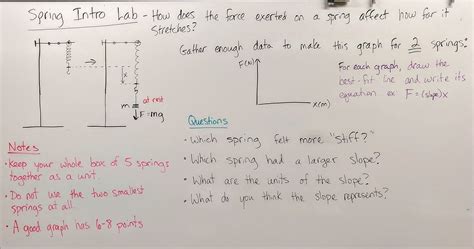 Spring Intro Lab - How does the force exerted on a spring affect how far it
stretches?
Gather enough data to make this graph for 2 springs:
F(N)
x(m)
For each graph, draw the
best-fit line and write its
equation ex F=(slope)x
x
m
at rest
F=mg
Notes
• Keep your whole box of 5 springs
together as a unit.
• Do not use the two smallest
springs at all.
• A good graph has 6-8 points
Questions
• Which spring felt more "stiff?"
• Which spring had a larger slope?
• What are the units of the slope?
• What do you think the slope represents?